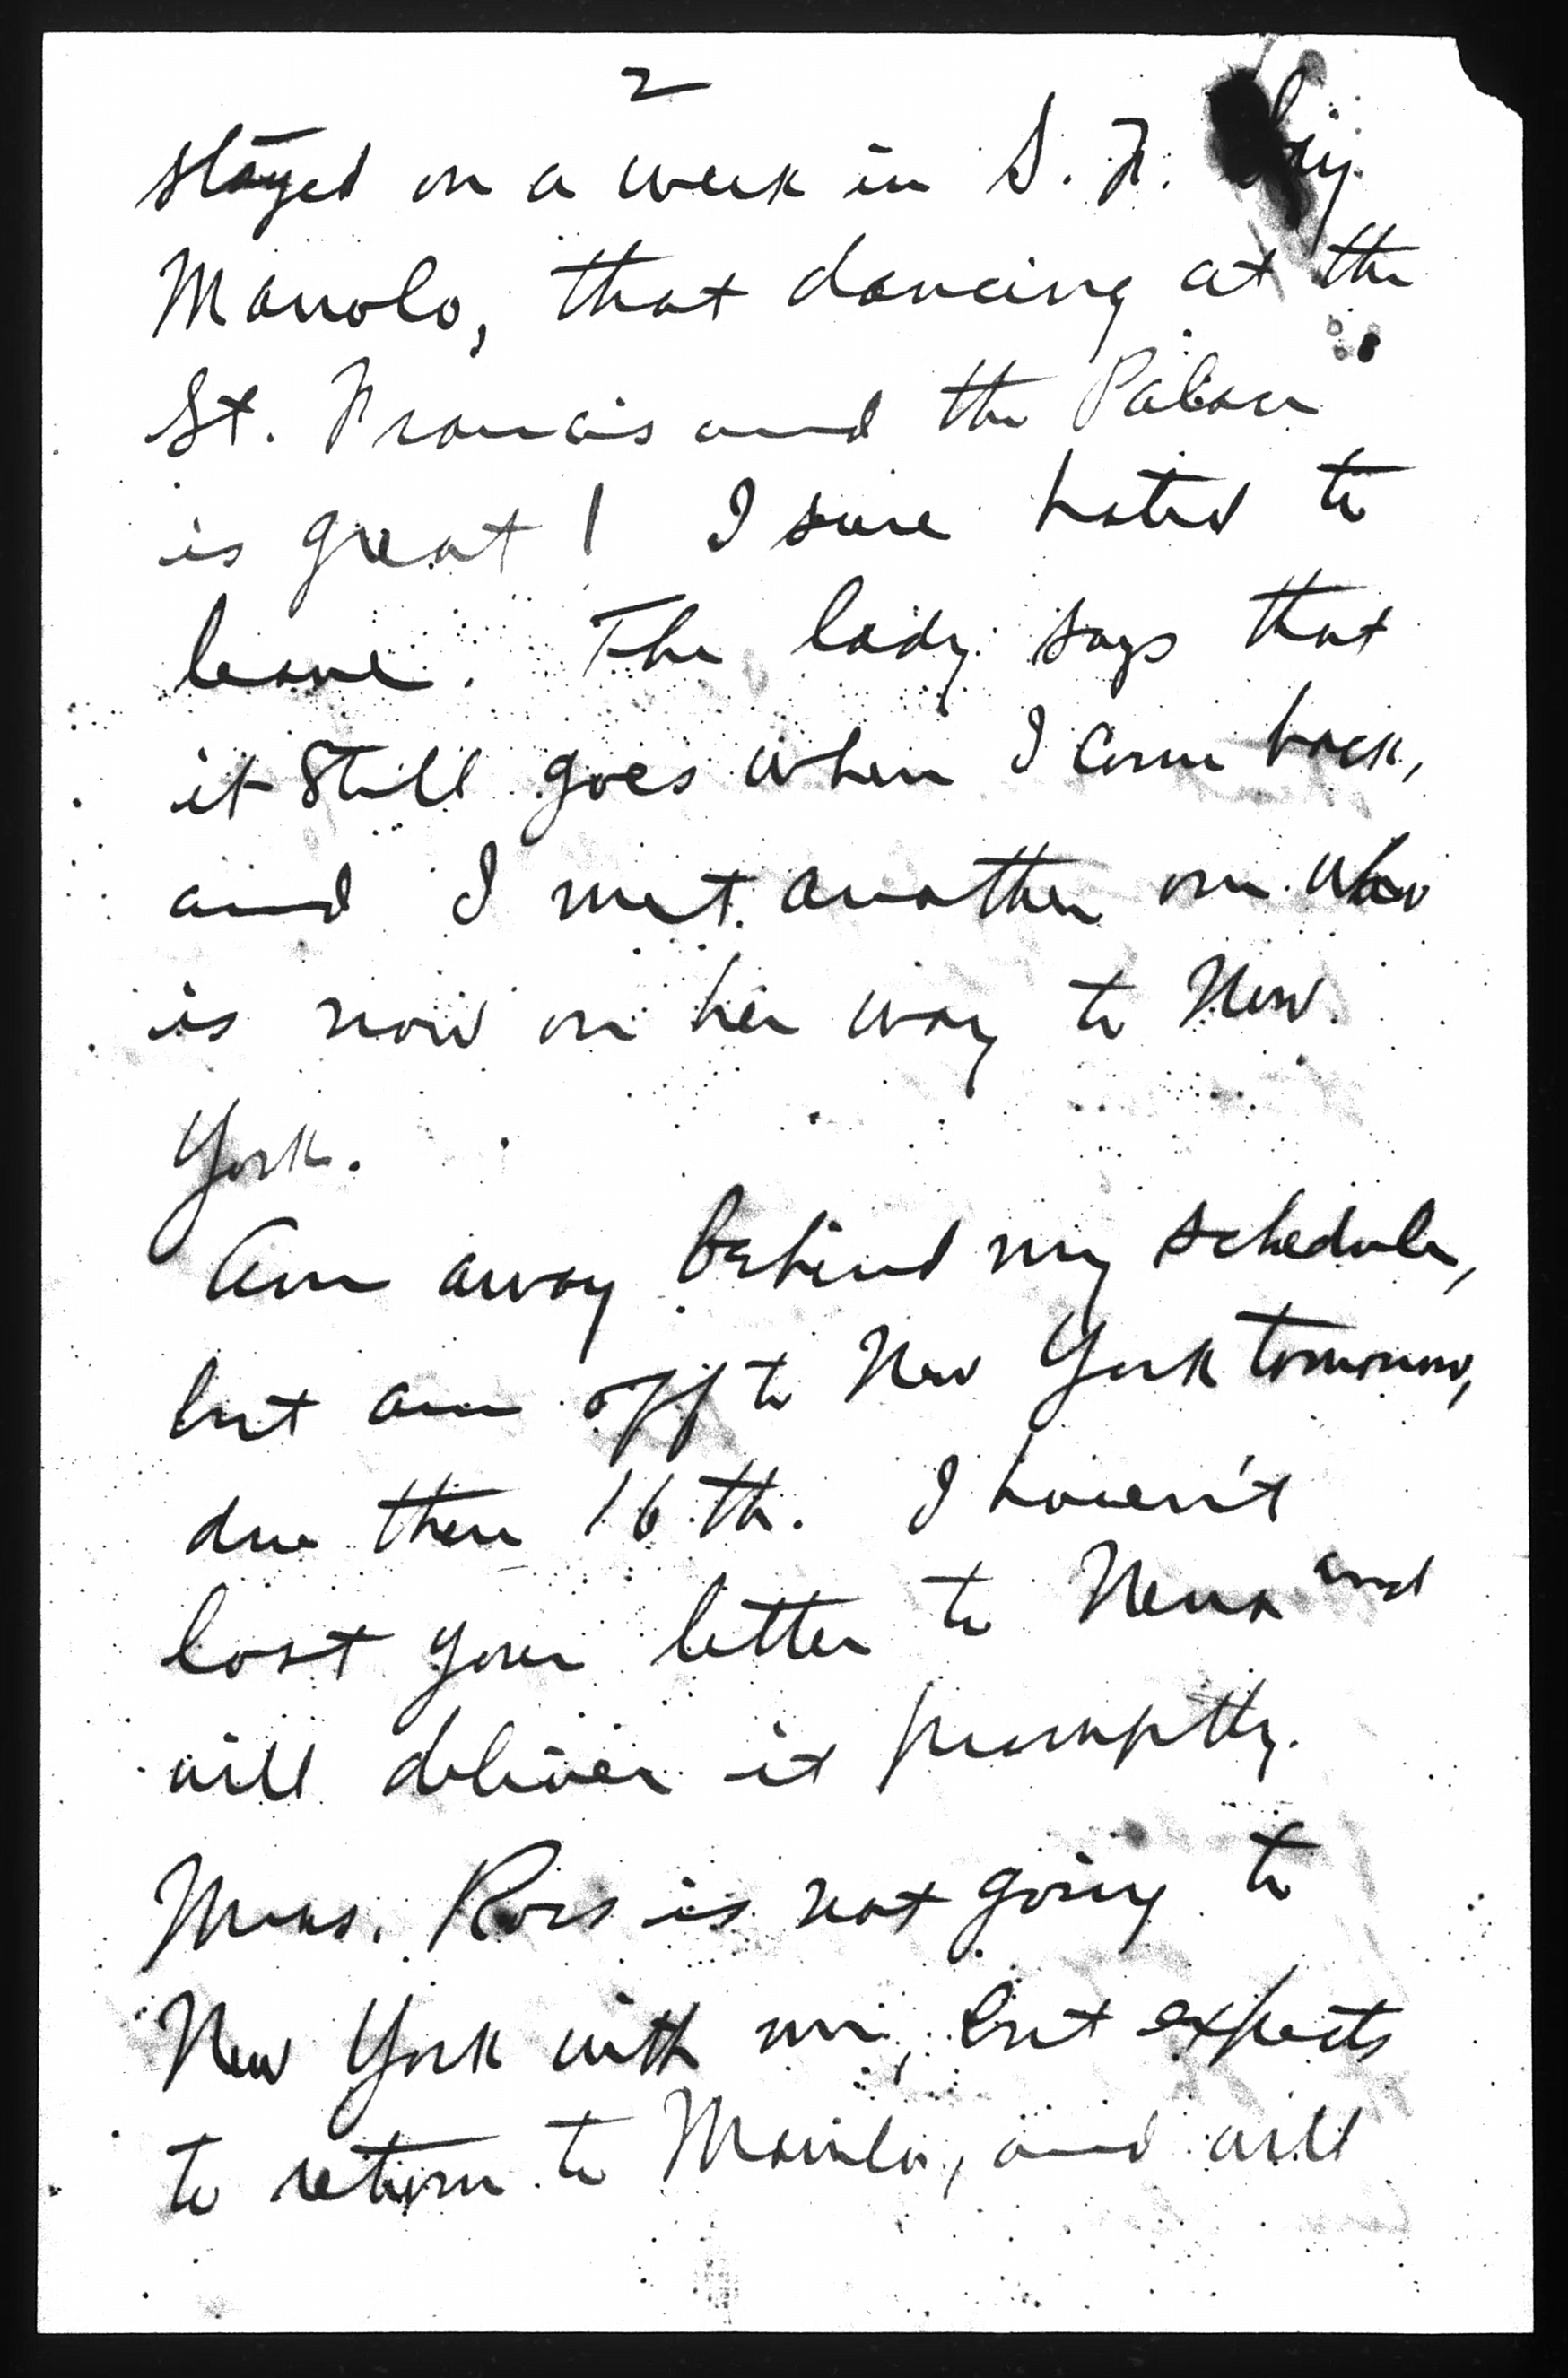 2
stayed on a week in S. F.
Manolo, that dancing at the
St. Francis and the Palace
is great! I sure hated to
leave. The lady says that
it still goes when I come back,
and I met another one who
is now on her way to New
York.
Am away behind my schedule,
but am off to New York tomorrow,
due there 16th. I haven't
lost your letter to Nena and
will deliver it promptly.
Mrs. Ross is not going to
New York with me, but expects
to return to Manila, and will